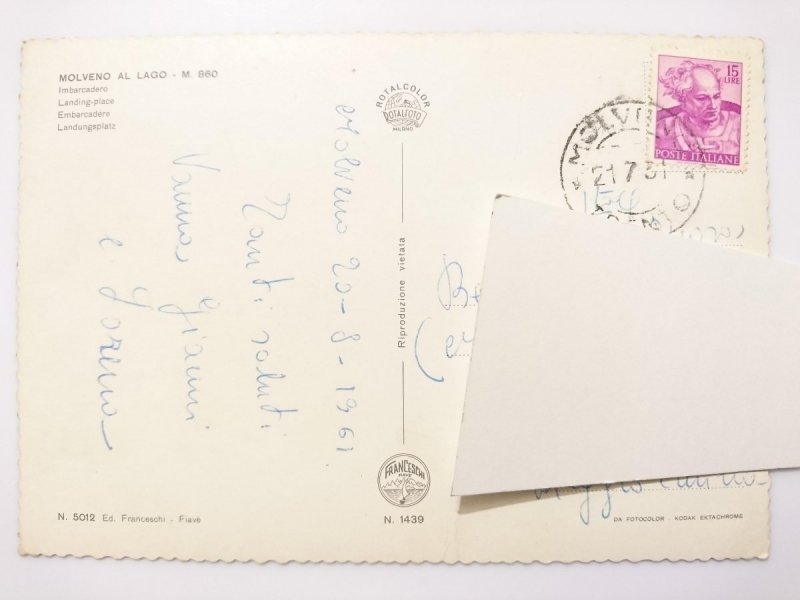 MOLVENO AL LAGO - M. 860
Imbarcadero
Landing-place
Embarcadère
Landungsplatz
Molveno 20-8-1961
Tanti saluti
Vanna Gianni
e Lorena
N. 5012 Ed. Franceschi - Fiavè
ROTALCOLOR
ROTALFOTO
MILANO
Riproduzione vietata
FRANCESCHI
FIAVÈ
N. 1439
15
LIRE
POSTE ITALIANE
21 7
DA FOTOCOLOR - KODAK EKTACHROME